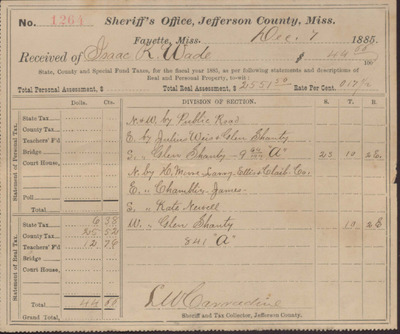 No. 1264 Sheriff's Office, Jefferson County, Miss.
Fayette, Miss. Dec. 7 1885.
Received of Isaac R. Wade $ 44 00/100
State, County and Special Fund Taxes, for the fiscal year 1885, as per following statements and descriptions of
Real and Personal Property, to-wit:
Total Personal Assessment, $ Total Real Assessment, $ 2551 Rate Per Cent.
Dolls. Cts. DIVISION OF SECTION. S. T. R.
Statement of Personal Tax.
State Tax
County Tax
Teachers' F'd
Bridge
Court House,
Poll
Total
N & W by Public Road
E. by Julius Weis & Glen Shanty
S. " Glen Shanty "A" 23 10 2 E.
N. by
E. " Chamblin James
S. " Kate Newell
W. " Glen Shanty 10 2 E
841 "A"
Statement of Real Tax.
State Tax 6 38
County Tax 25 52
Teachers' F'd 12 76
Bridge
Court House
Total
Grand Total,
Sheriff and Tax Collector, Jefferson County.